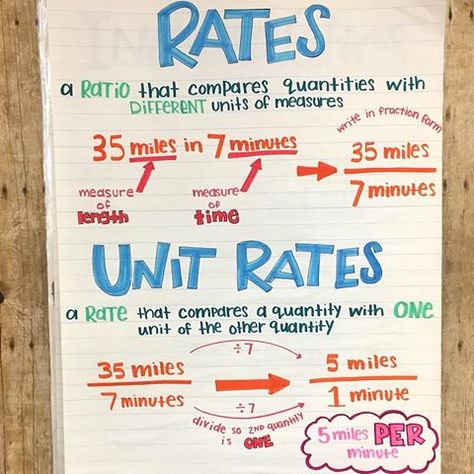 RATES
a RATIO that compares quantities with
DIFFERENT units of measures
write in fraction form
35 miles in 7 minutes
35 miles
7 minutes
measure of length
measure of time
UNIT RATES
a RATE that compares a quantity with ONE
unit of the other quantity
35 miles
7 minutes
÷7
÷7
5 miles
1 minute
divide so 2ND quantity
is ONE
5 miles PER
minute